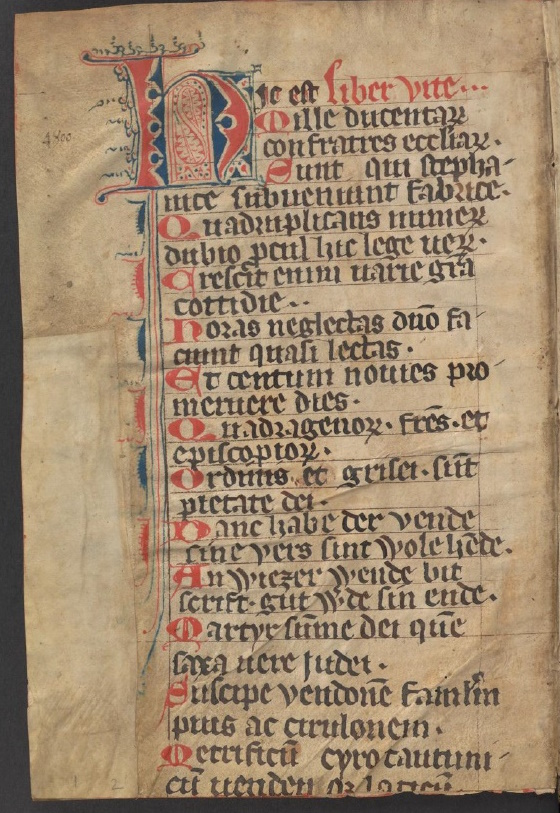 Hic est liber vite
Mille ducentar
confratres eccliar.
Sunt qui stepha-
nice subueniunt fabrice.
Quadruplicatis numer
dubio pcul hic lege uer.
Crescit enim uarie gra
cottidie..
Horas neglectas duo fa-
ciunt quasi lectas.
Et centum nouies pro-
meruere dies.
Quadragenor. fres. et
episcopior.
Ordinis et grisei. sut
pietate dei.
Hanc habe der vende
sine vers sint wole hede.
An wiezer wende bit
scrift. gut w.de sin ende.
Martyr sume dei que
saxa uere iudei.
Suscipe
pius ac
Metrificu
cu